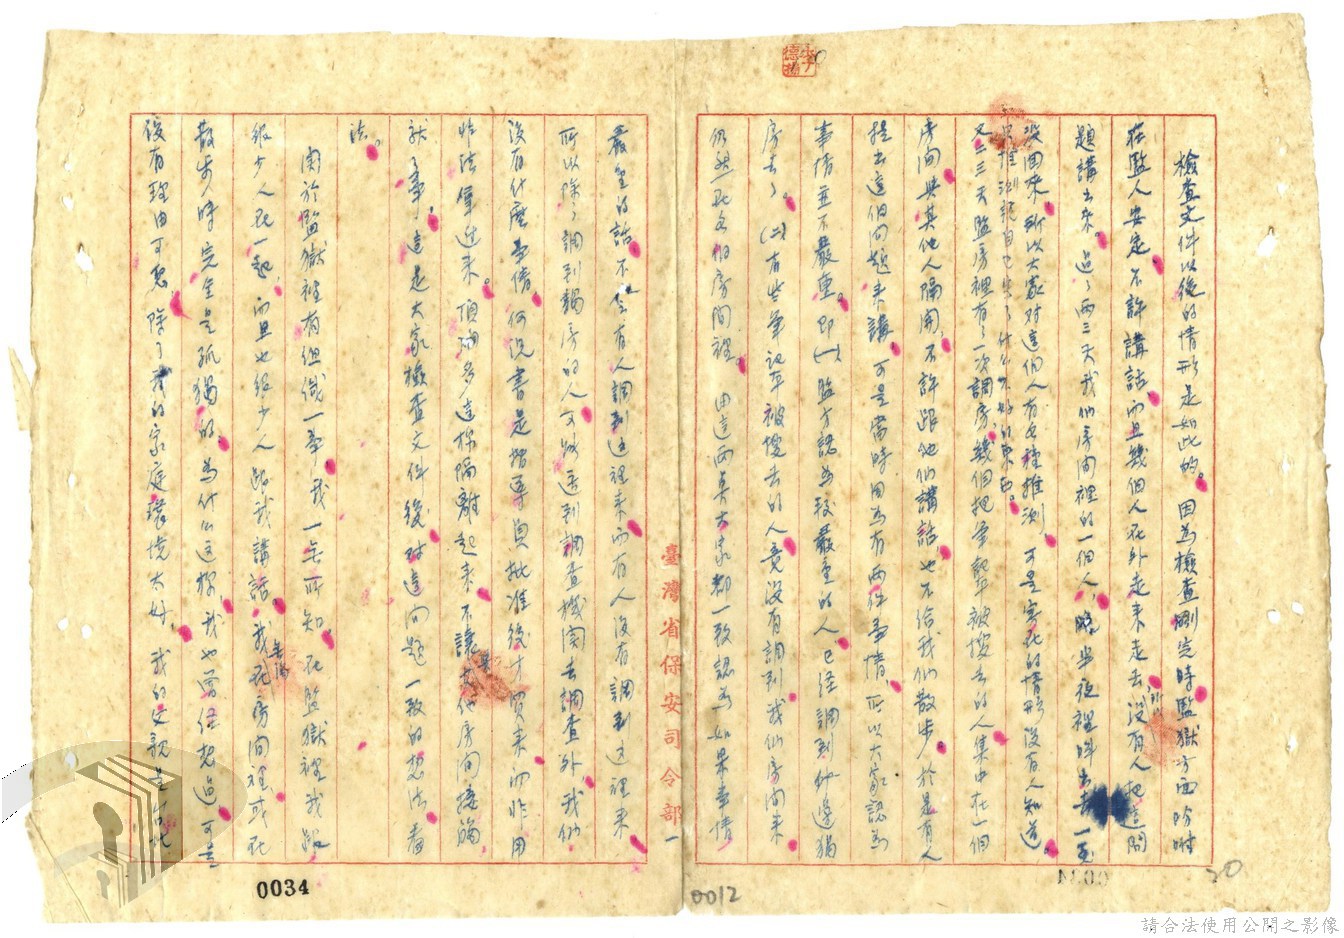 檢查文件以後的情形是如此的。因為檢查剛完時監獄方面吩咐
在監人安定不許講話,而且幾個人在外走來走去,所沒有人把這問
題講出來。過了兩三天我們房間裡的一個人,臨半夜裡叫出去一至
沒回來,所以大家对這個人有各種推測,可是實在的情形沒有人知道。
又二三天監房裡有了一次調房,幾個把筆記簿被搜去的人集中在一個
房间與其他人隔開,不許跟他们講話,也不给我们散步,於是有人
提出這個问題來講,可是當時因為有两件事情,所以大家認為
事情並不嚴重即(一)監方認為較嚴重的人已経調到外邊獨
房去了。(二)有些筆記本被搜去的人竟沒有調到我们房间來
仍然在各的房间裡。由這两點大家都一致認為如果事情
嚴重的話,不会有人調到這裡來而有人沒有調到這裡來
所以除了調到獨房的人可能送到調查機関去調查外,我们
沒有什麼事情,何况書是指導員批准後才買來的非用
非法拿進來,頂好多這樣隔離起來不讓與其他房间接觸
就了事,這是大家檢查文件後对這问題一致的想法看
法。
関於監獄裡有組織一事,我一無所知。在監獄裡我跟
很少人在一起,而且也很少人跟我講話。我在房间裡或在
散步時完全是孤獨的。為什么這樣我也曾経想過,可是
沒有理由可思,除了我的家庭環境太好。我的父親是
臺灣省保安司令部
0034
0012
20
請合法使用公開之影像